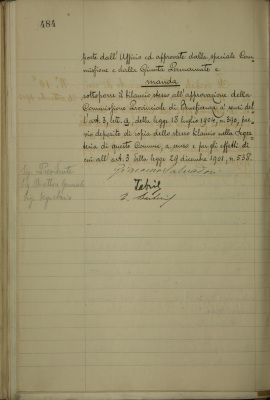 484
poste dall'Ufficio ed approvate dalla speciale Com-
missione e dalla Giunta Permanente e
manda
sottoporre il bilancio stesso all'approvazione della
Commissione Provinciale di Beneficenza ai sensi del-
l'art. 3, lett. a, della legge 18 luglio 1904, n. 390, pre-
vio deposito di copia dello stesso bilancio nella Segre-
teria di questo Comune, a senso e per gli effetti di
cui all'art. 3 della legge 29 dicembre 1901, n. 538.